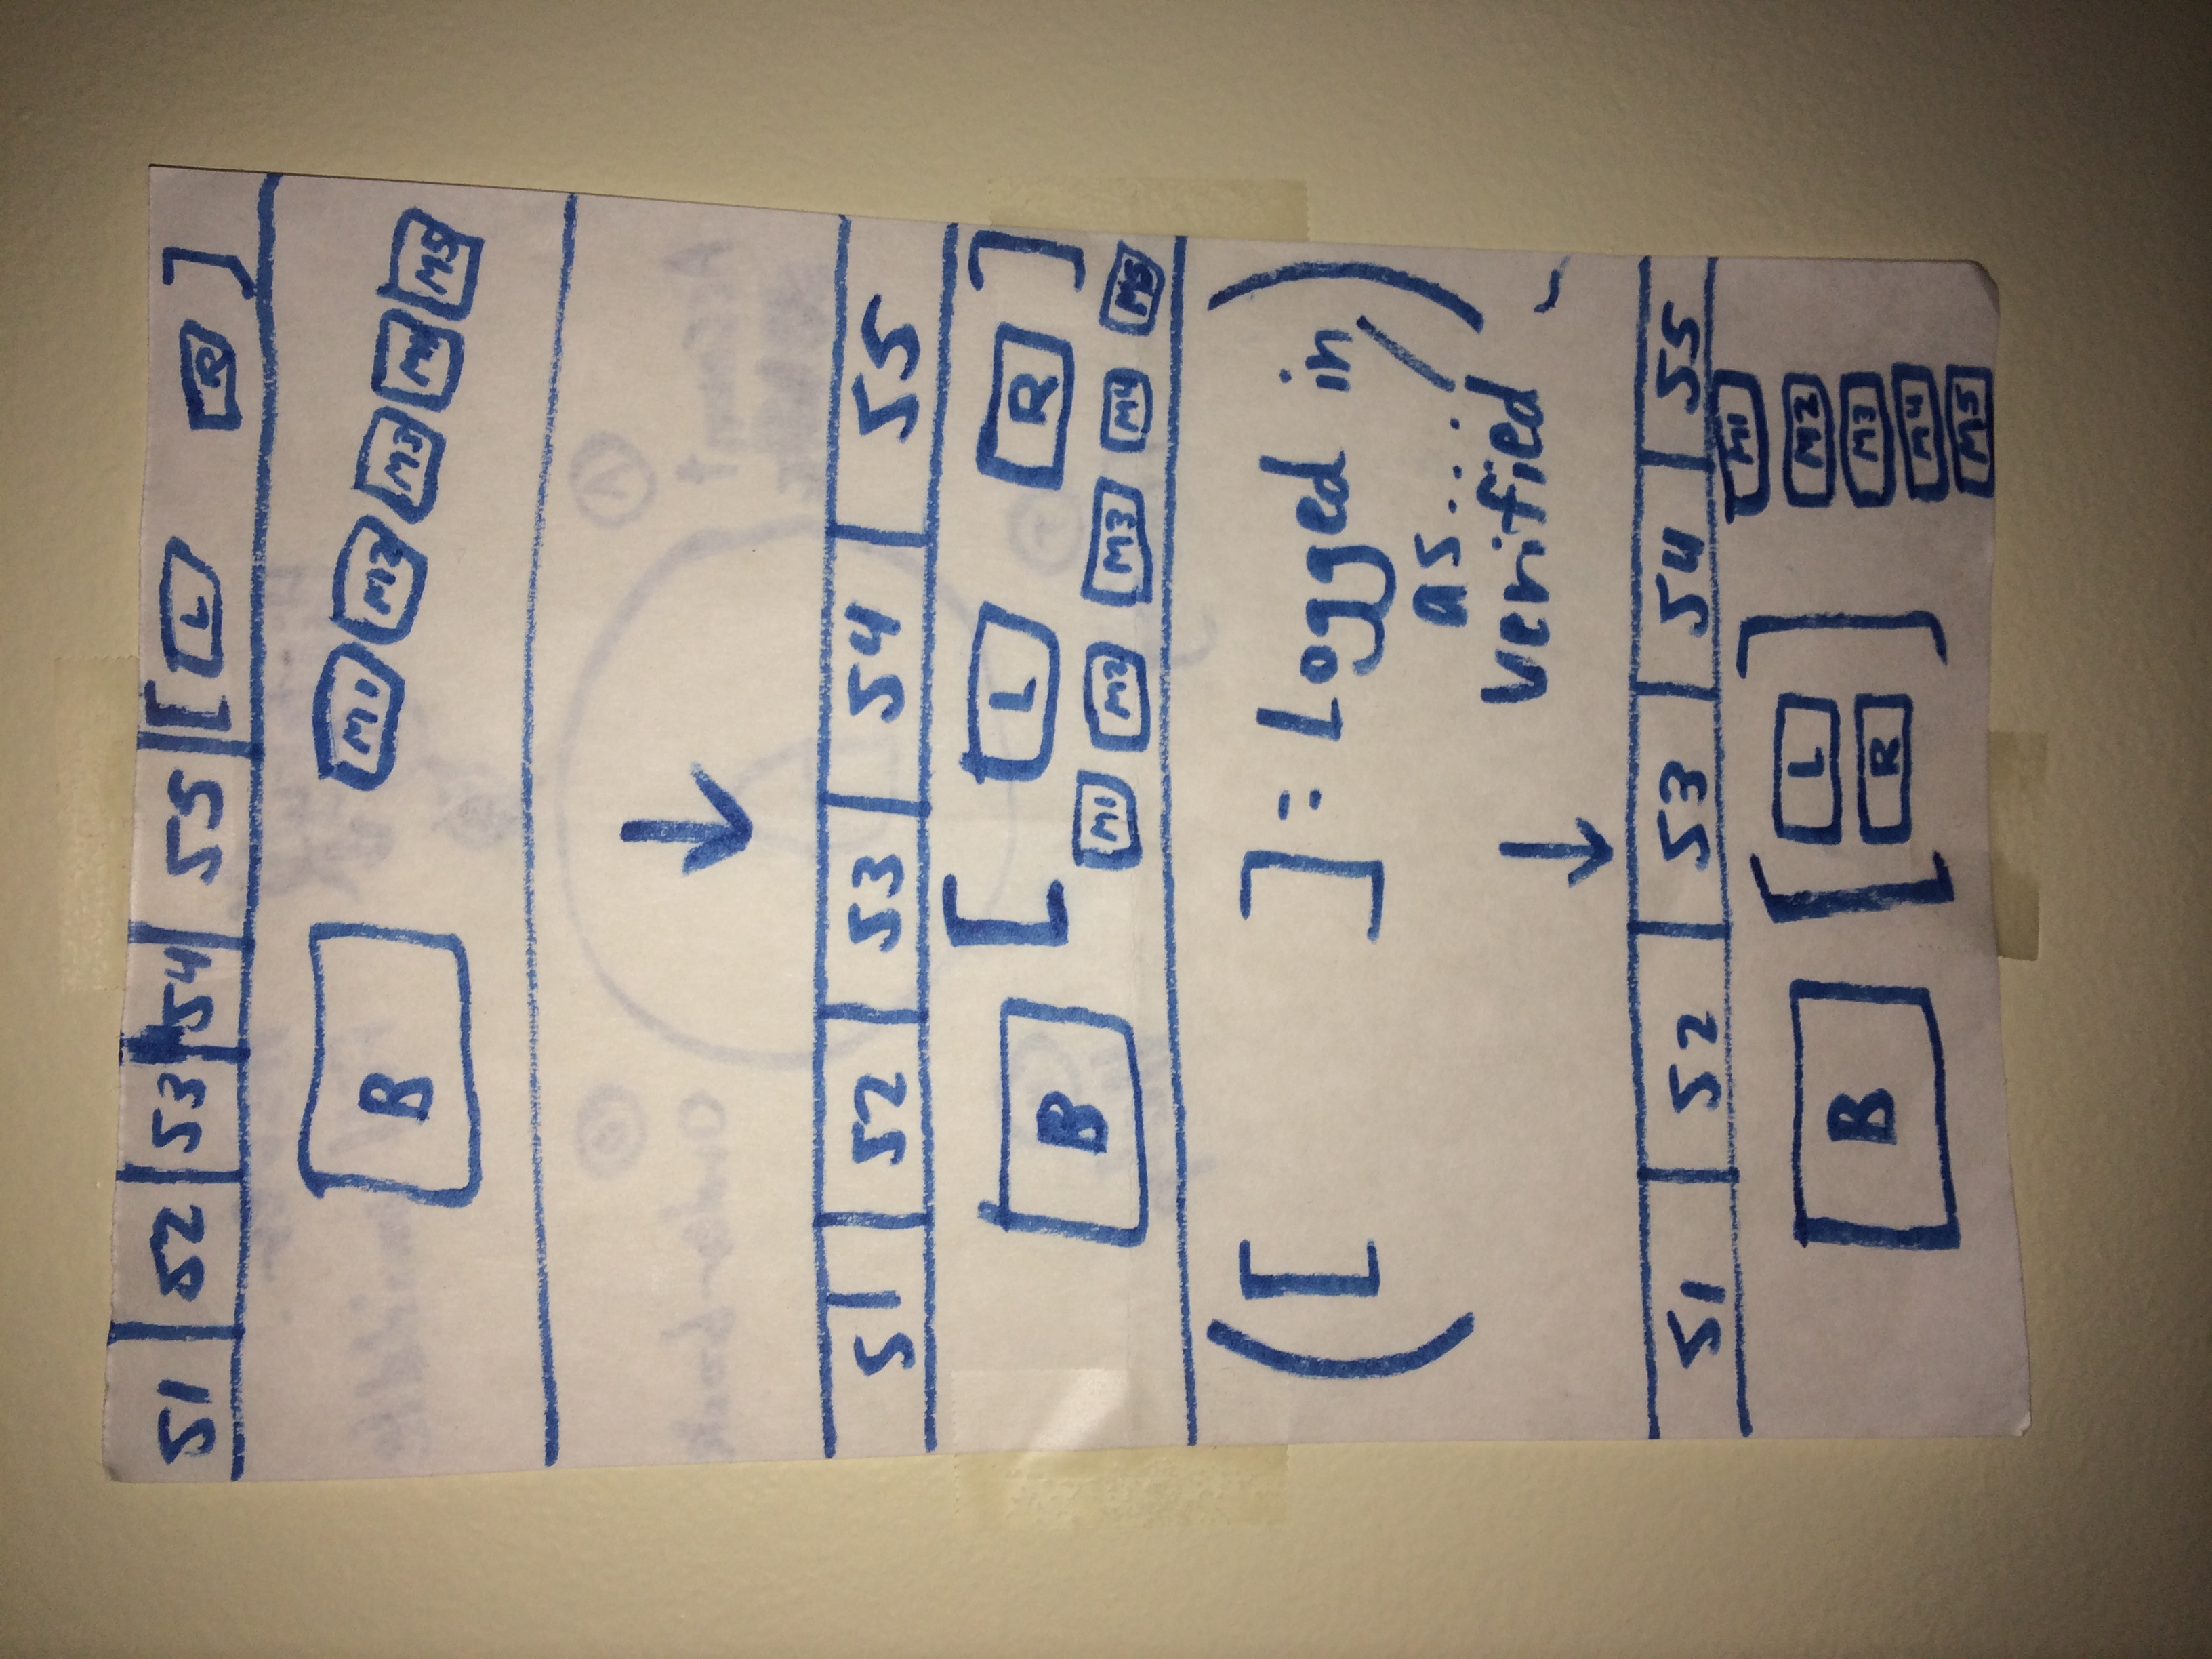 S1 S2 S3 S4 S5 [ L R ]
B M1 M2 M3 M4 M5
S1 S2 S3 S4 S5
B [ L R ]
M1 M2 M3 M4 M5
([ ] = Logged in
as... /)
verified
S1 S2 S3 S4 S5
B [ L
R ]
M1
M2
M3
M4
M5